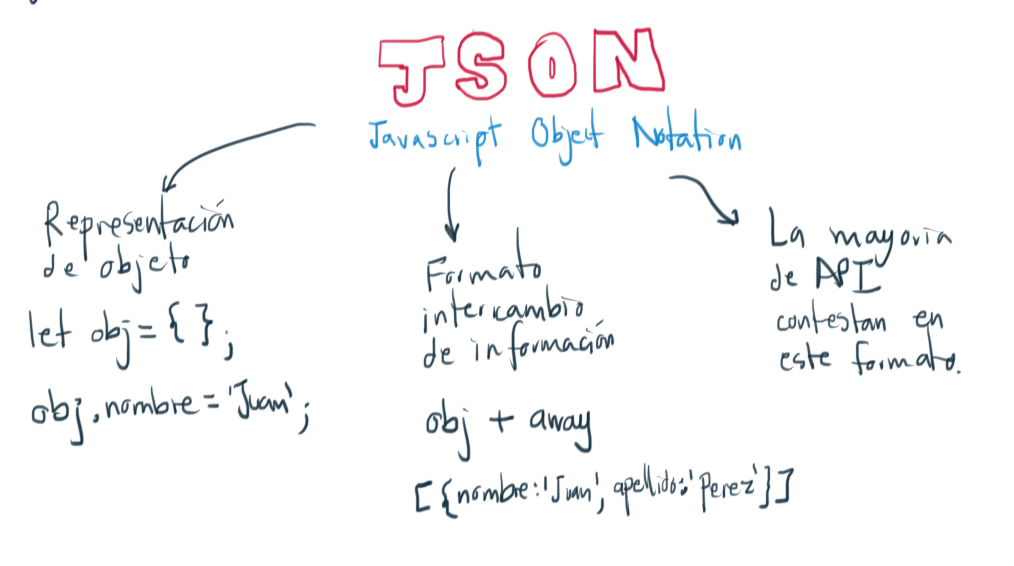 JSON
Javascript Object Notation
Representación
de objeto
let obj = { };
obj.nombre = 'Juan';
Formato
intercambio
de información
obj + array
[{nombre:'Juan', apellido:'Perez'}]
La mayoria
de API
contestan en
este formato.